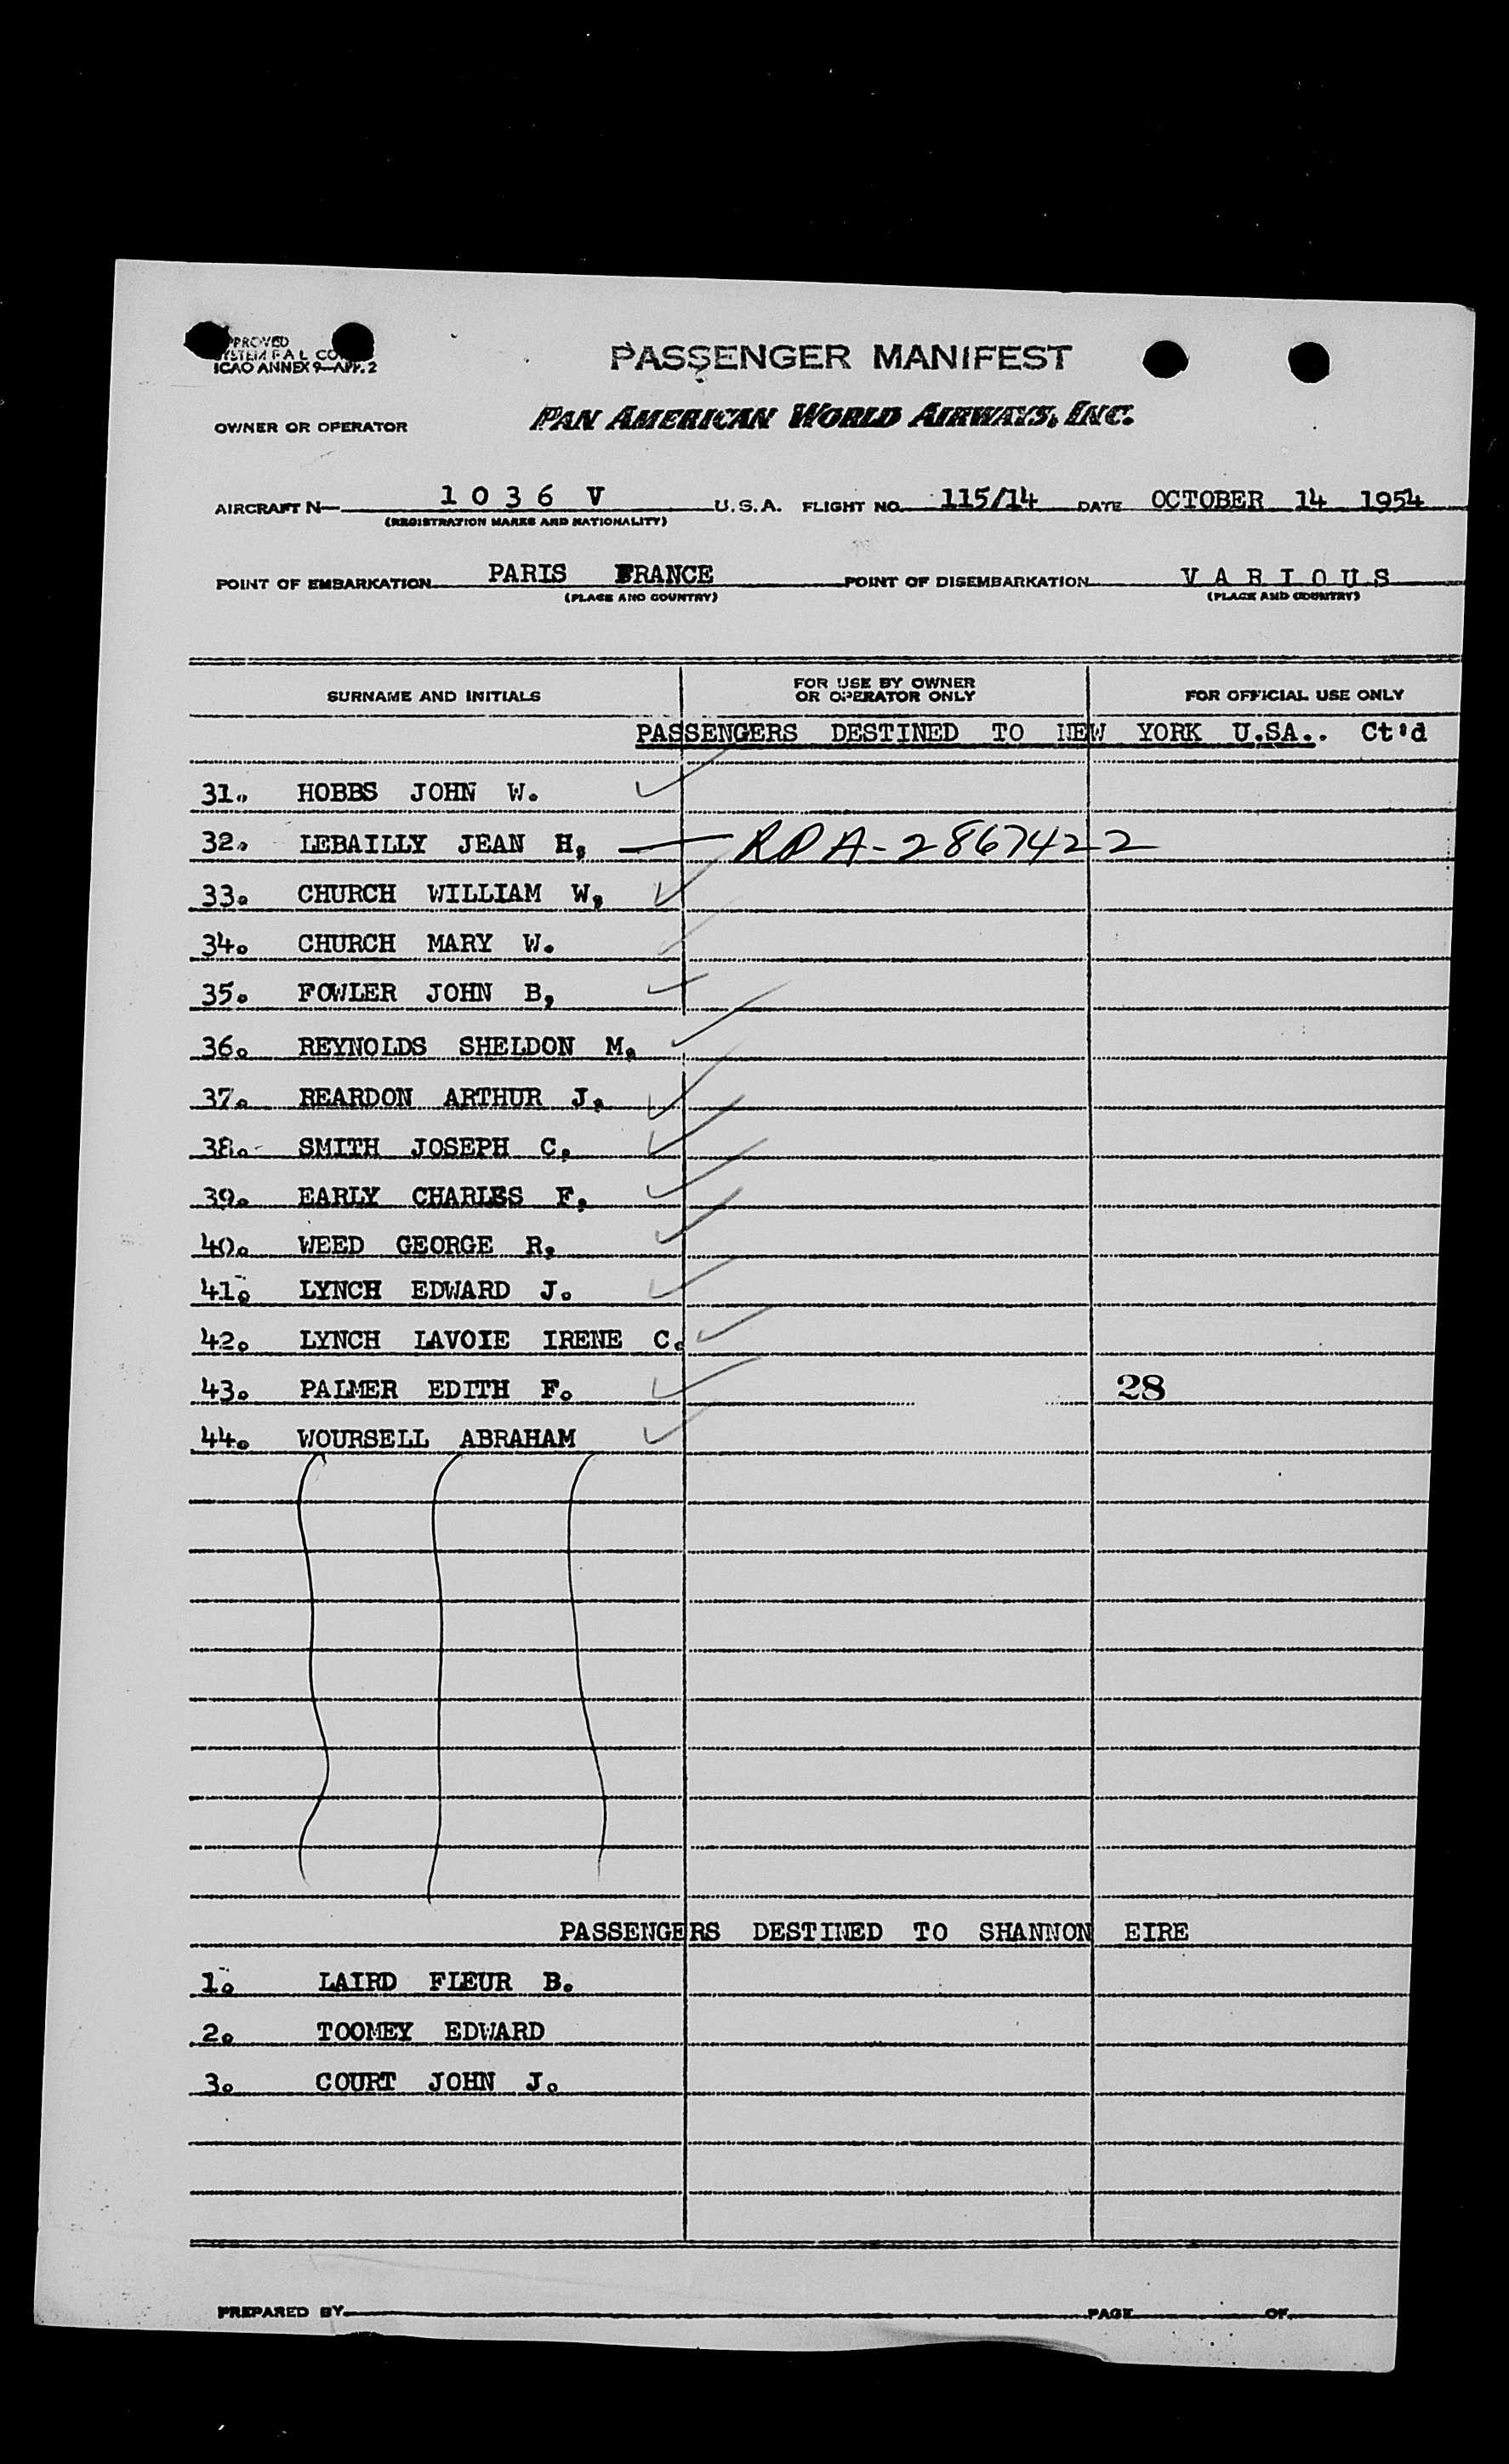 APPROVED
SYSTEM F A L CO
ICAO ANNEX 9-APP. 2
PASSENGER MANIFEST
OWNER OR OPERATOR PAN AMERICAN WORLD AIRWAYS, INC.
AIRCRAFT N- 1 0 3 6 V U.S.A. FLIGHT NO. 115/14 DATE OCTOBER 14 1954
(REGISTRATION MARKS AND NATIONALITY)
POINT OF EMBARKATION PARIS FRANCE POINT OF DISEMBARKATION V A R I O U S
(PLACE AND COUNTRY) (PLACE AND COUNTRY)
SURNAME AND INITIALS FOR USE BY OWNER OR OPERATOR ONLY FOR OFFICIAL USE ONLY
PASSENGERS DESTINED TO NEW YORK U.SA.. Ct'd
31. HOBBS JOHN W.
32. LEBAILLY JEAN H, — RDA-2867422
33. CHURCH WILLIAM W,
34. CHURCH MARY W.
35. FOWLER JOHN B,
36. REYNOLDS SHELDON M,
37. REARDON ARTHUR J,
38. SMITH JOSEPH C,
39. EARLY CHARLES F,
40. WEED GEORGE R,
41. LYNCH EDWARD J.
42. LYNCH LAVOIE IRENE C.
43. PALMER EDITH F. 28
44. WOURSELL ABRAHAM
PASSENGERS DESTINED TO SHANNON EIRE
1. LAIRD FLEUR B.
2. TOOMEY EDWARD
3. COURT JOHN J.
PREPARED BY PAGE OF